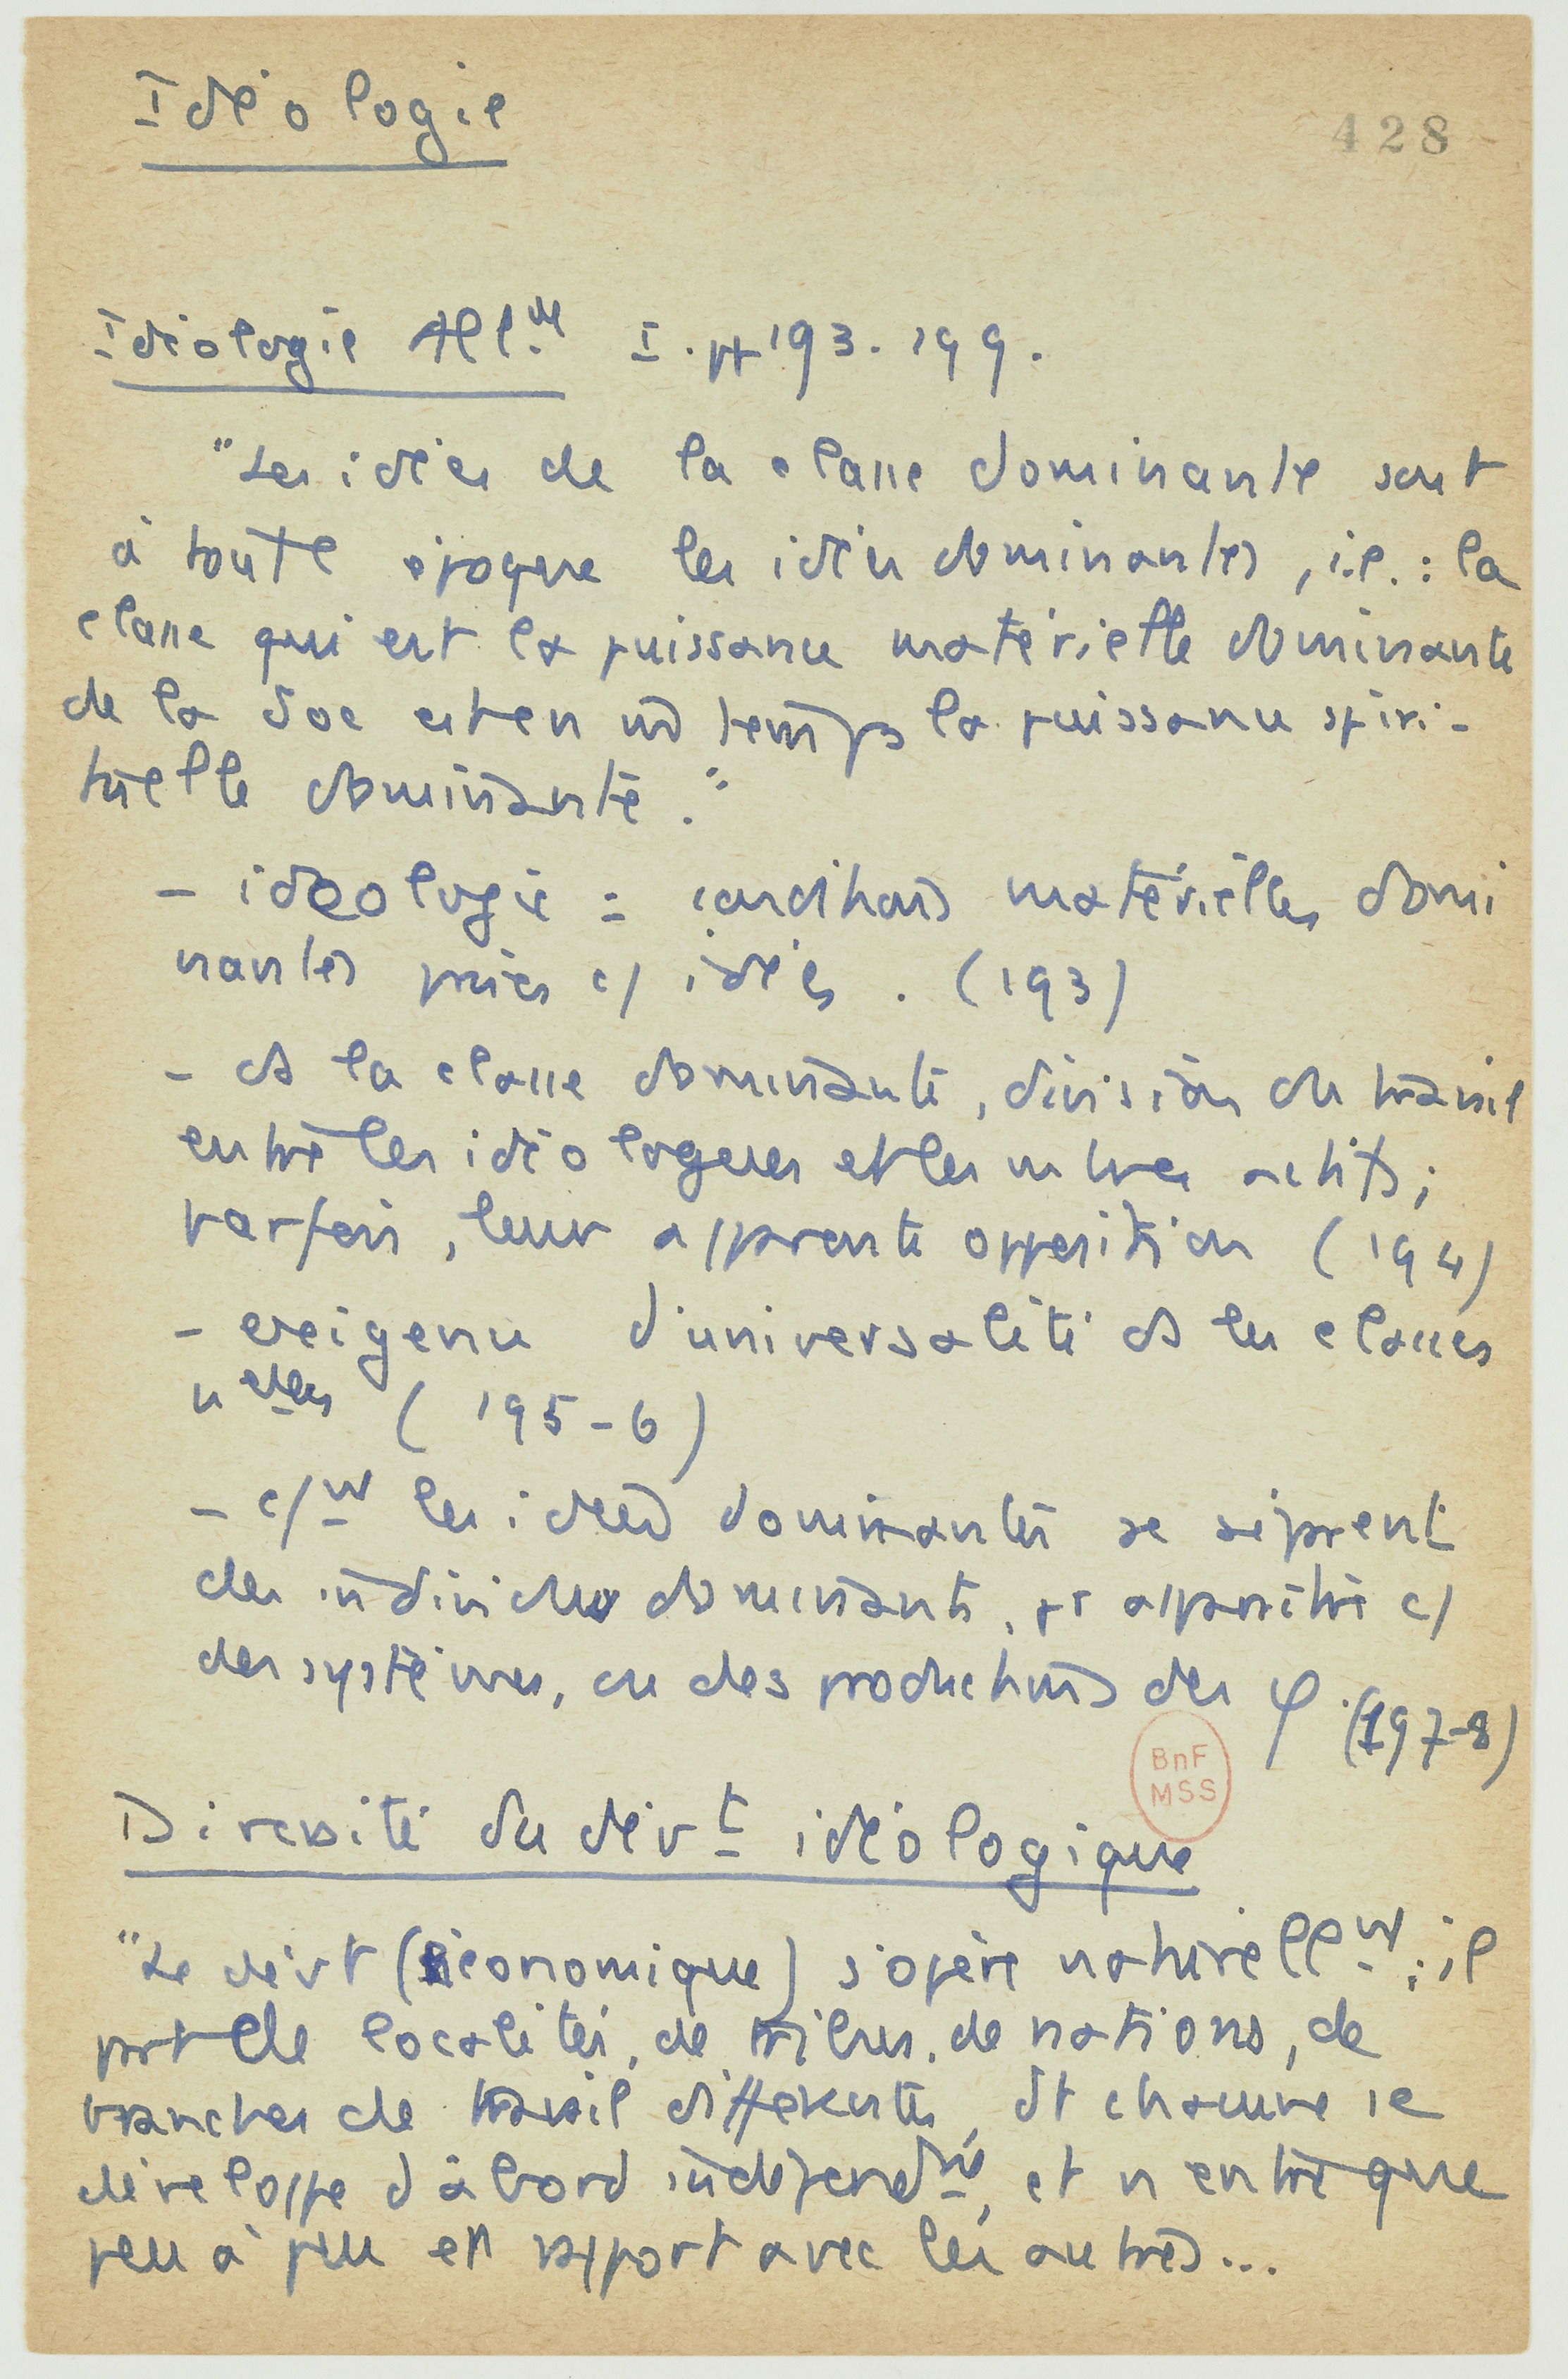 Idéologie
428
Idéologie All.de I. pp 193. 199.
"Les idées de la classe dominante sont
à toute époque les idées dominantes, i.e. : la
classe qui est la puissance matérielle dominante
de la soc est en m̂ temps la puissance spiri-
tuelle dominante."
- idéologie = conditions matérielles domi
nantes prises c/ idées. (193)
- ds la classe dominante, division du travail
entre les idéologues et les mbres actifs ;
parfois, leur apparente opposition (194)
- exigence d'universalité ds les classes
nelles (195-6)
- c/nt les idées dominantes se séparent
des individus dominants, pr apparaître c/
des systèmes, ou des productions des φ. (197-8)
Diversité du dévt idéologique
"Le dévt (économique) s'opère naturellnt ; il
part de localités, de tribus, de nations, de
branches de travail différentes, dt chacune se
développe d'abord indépendnt, et n'entre que
peu à peu en rapport avec les autres...
BnF
MSS